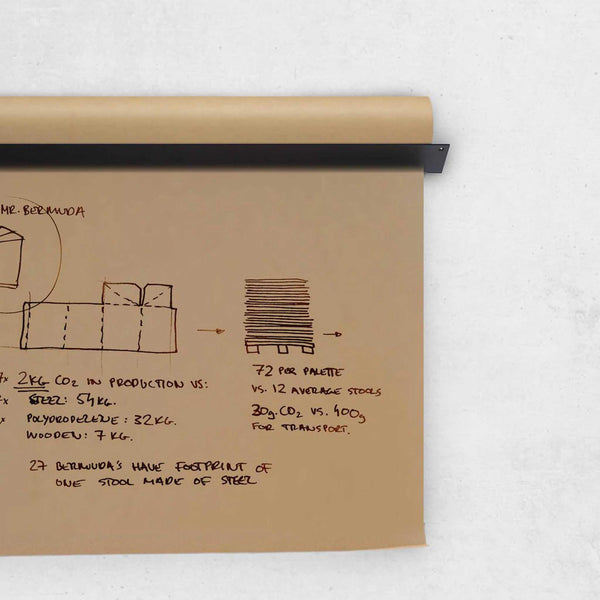 MR. BERMUDA
7x 2KG CO2 IN PRODUCTION VS:
x STEEL: 54KG.
x POLYOROPELENE: 32KG.
WOODEN: 7KG.
27 BERMUDA'S HAVE FOOTPRINT OF
ONE STOOL MADE OF STEEL
72 PER PALETTE
VS. 12 AVERAGE STOOLS
30g. CO2 VS. 400g
FOR TRANSPORT.